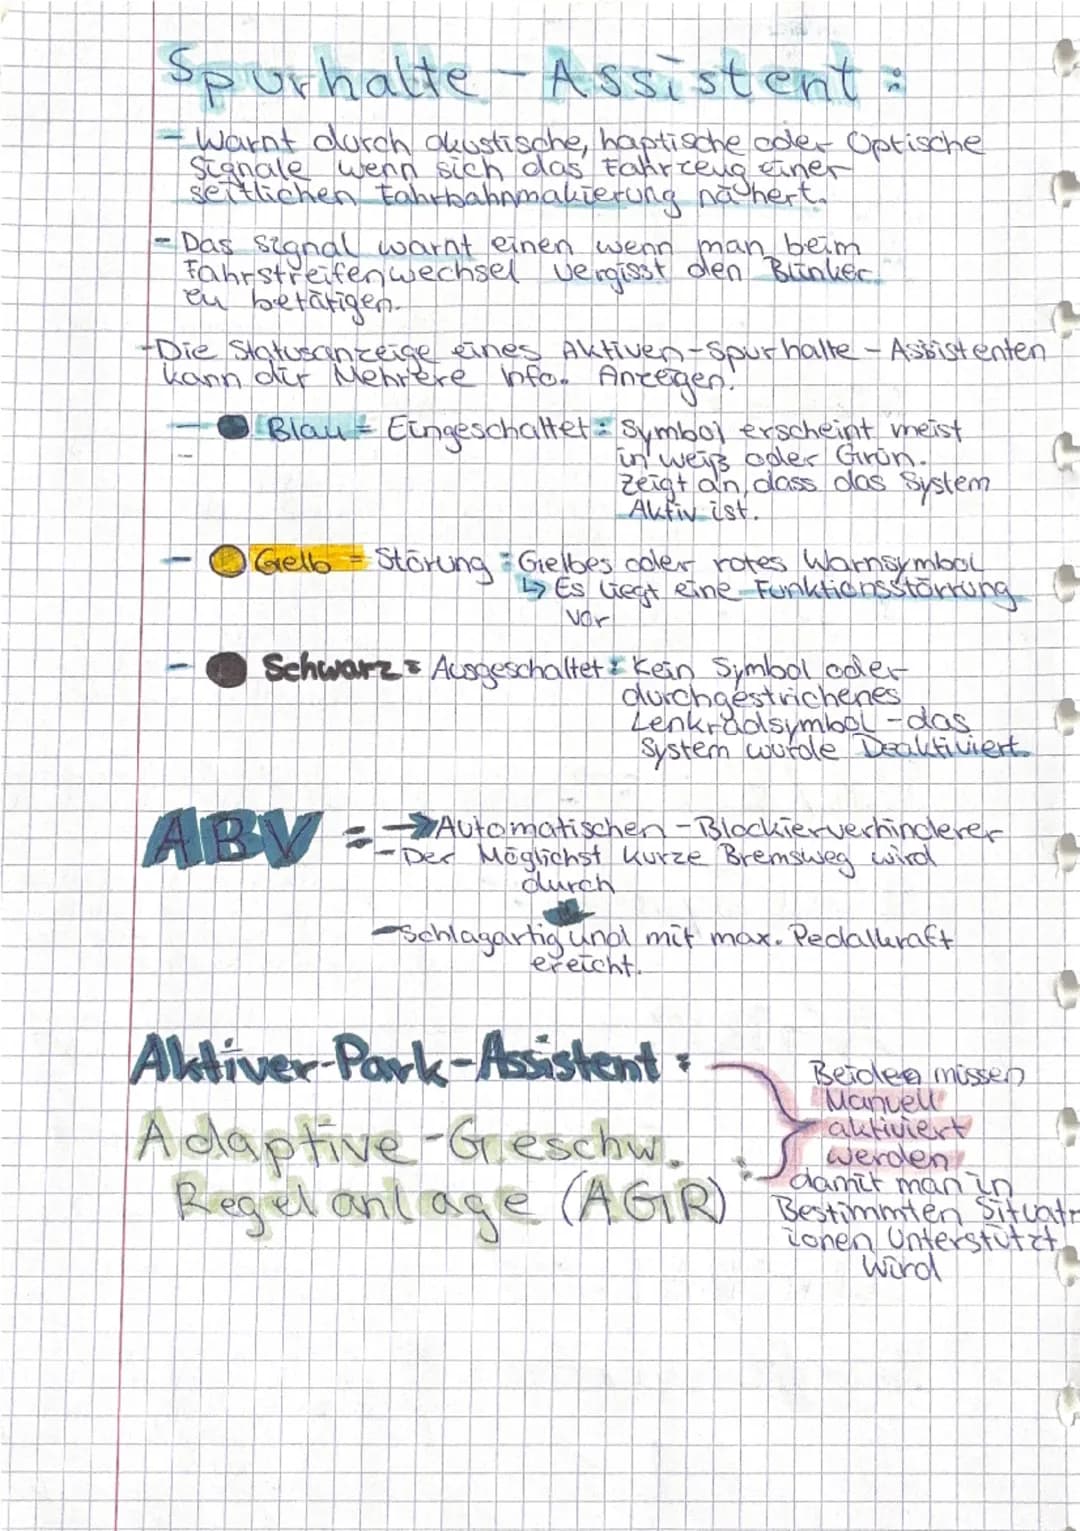 Spurhalte - Assistent :
- Warnt durch akustische, haptische oder Optische
Signale wenn sich das Fahrzeug einer
seitlichen Fahrbahnmakierung nähert.
- Das Signal warnt einen wenn man beim
Fahrstreifenwechsel vergisst den Blinker
zu betätigen.
- Die Statusanzeige eines Aktiven-Spurhalte - Assistenten
kann dir Mehrere Info. Anzeigen.
- Blau = Eingeschaltet : Symbol erscheint meist
in weiß oder Grün.
Zeigt an, dass das System
Aktiv ist.
- Gelb = Störung : Gelbes oder rotes Warnsymbol
↳ Es liegt eine Funktionsstörrung
vor
- Schwarz = Ausgeschaltet : Kein Symbol oder
durchgestrichenes
Lenkradsymbol - das
System wurde Deaktiviert.
ABV = → Automatischen - Blockierverhinderer
- Der Möglichst kurze Bremsweg wird
durch
- Schlagartig und mit max. Pedalkraft
ereicht.
Aktiver-Park-Assistent :
Adaptive - Geschw.
Regelanlage (AGR) :
Beiden müssen
Manuell
aktiviert
werden
damit man in
Bestimmten Situat-
ionen Unterstützt
wird